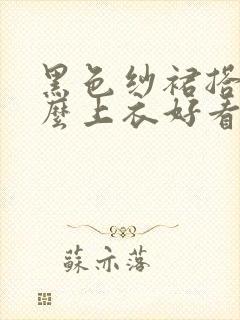 黑色纱裙搭
麼上衣好看
蘇亦落